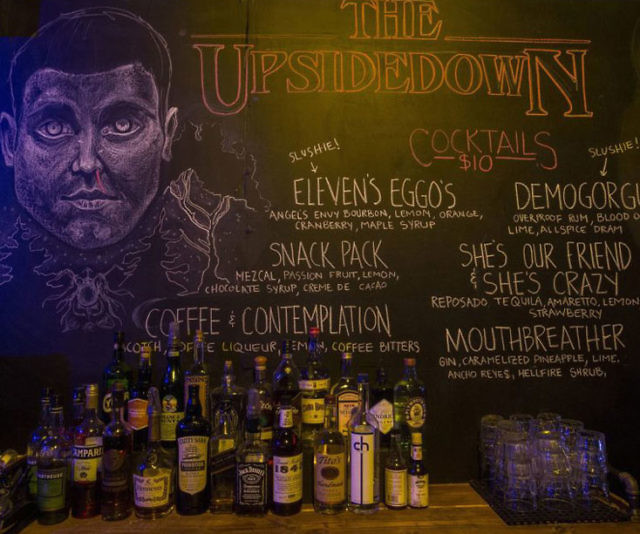 THE
UPSIDEDOWN
COCKTAILS
$10
SLUSHIE!
ELEVEN'S EGGO'S
ANGELS ENVY BOURBON, LEMON, ORANGE,
CRANBERRY, MAPLE SYRUP
SNACK PACK
MEZCAL, PASSION FRUIT, LEMON,
CHOCOLATE SYRUP, CREME DE CACAO
COFFEE & CONTEMPLATION
SCOTCH, COFFEE LIQUEUR, LEMON, COFFEE BITTERS
SLUSHIE!
DEMOGORGU
OVERPROOF RUM, BLOOD O
LIME, ALLSPICE DRAM
SHE'S OUR FRIEND
& SHE'S CRAZY
REPOSADO TEQUILA, AMARETTO, LEMON
STRAWBERRY
MOUTHBREATHER
GIN, CARAMELIZED PINEAPPLE, LIME,
ANCHO REYES, HELLFIRE SHRUB,
CAMPARI
Hennessy
JACK DANIEL'S
184
Tito's
Handmade
ch